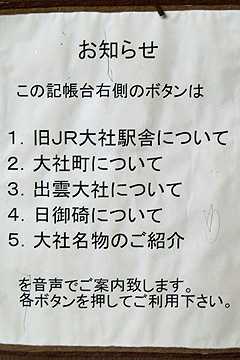 お知らせ
この記帳台右側のボタンは
1．旧JR大社駅舎について
2．大社町について
3．出雲大社について
4．日御碕について
5．大社名物のご紹介
を音声でご案内致します。
各ボタンを押してご利用下さい。